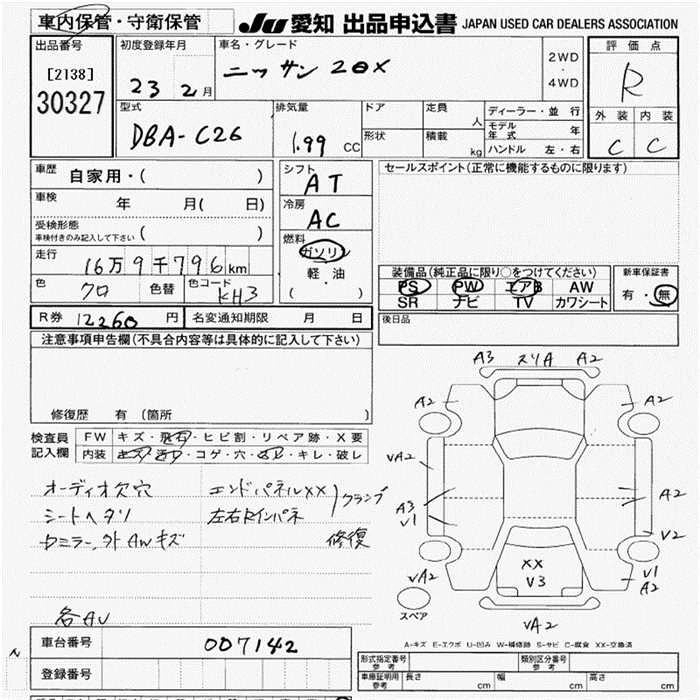 車内保管・守衛保管
JU 愛知 出品申込書 JAPAN USED CAR DEALERS ASSOCIATION
出品番号
[2138]
30327
初度登録年月
23 2月
車名・グレード
ニッサン 20X
2WD
・
4WD
評価点
R
外装 内装
C C
型式
DBA-C26
排気量
1.99 CC
ドア
定員
人
形状
積載
kg
ディーラー・並行
モデル年式 年
ハンドル 左・右
車歴
自家用・( )
車検
年 月( 日)
受検形態
車検付きのみ記入して下さい ( )
走行
16万9千796km
色
クロ
色替
色コード
KH3
シフト
AT
冷房
AC
燃料
ガソリン
軽・油
( )
セールスポイント(正常に機能するものに限ります)
装備品(純正品に限り○をつけてください)
PS PW エアB AW
SR ナビ TV カワシート
新車保証書
有・無
R券 12260 円
名変通知期限 月 日
後日品
注意事項申告欄(不具合内容等は具体的に記入して下さい)
修復歴 有(箇所 )
検査員
記入欄
FW キズ・飛石・ヒビ割・リペア跡・X要
内装 コゲ・穴・キレ・破レ
オーディオ欠穴
シートヘタリ
外AWキズ
各AU
エンドパネルXX
左右Rインパネ
クランプ
修復
A3 スリA A2
A2 A2
VA2
A3
V1
A2
V2
VA2
XX
V3
V1
A2
VA2
スペア
A-キズ E-エクボ U-凹み W-補修跡 S-サビ C-腐食 XX-交換済
車台番号
007142
登録番号
形式指定番号
参考
類別区分番号
参考
車庫証明用
参考
長さ cm
幅 cm
高さ cm